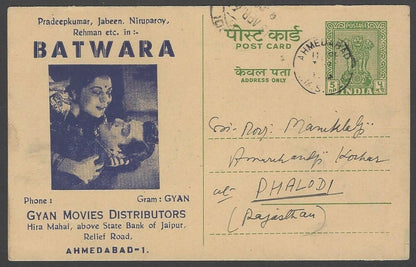 Pradeepkumar, Jabeen, Niruparoy,
Rehman etc. in :-
BATWARA
Phone :
Gram : GYAN
GYAN MOVIES DISTRIBUTORS
Hira Mahal, above State Bank of Jaipur,
Relief Road,
AHMEDABAD-1.
पोस्ट कार्ड
POST CARD
केवल पता
ADDRESS ONLY
AHMEDABAD
INDIA
Manaklalji
Amarchandji Kochar
PHALODI
(Rajasthan)